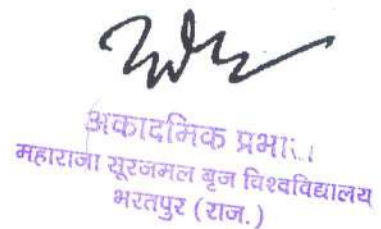 अकादमिक
महाराजा सूरजमल बृज विश्वविद्यालय
भरतपुर (राज.)